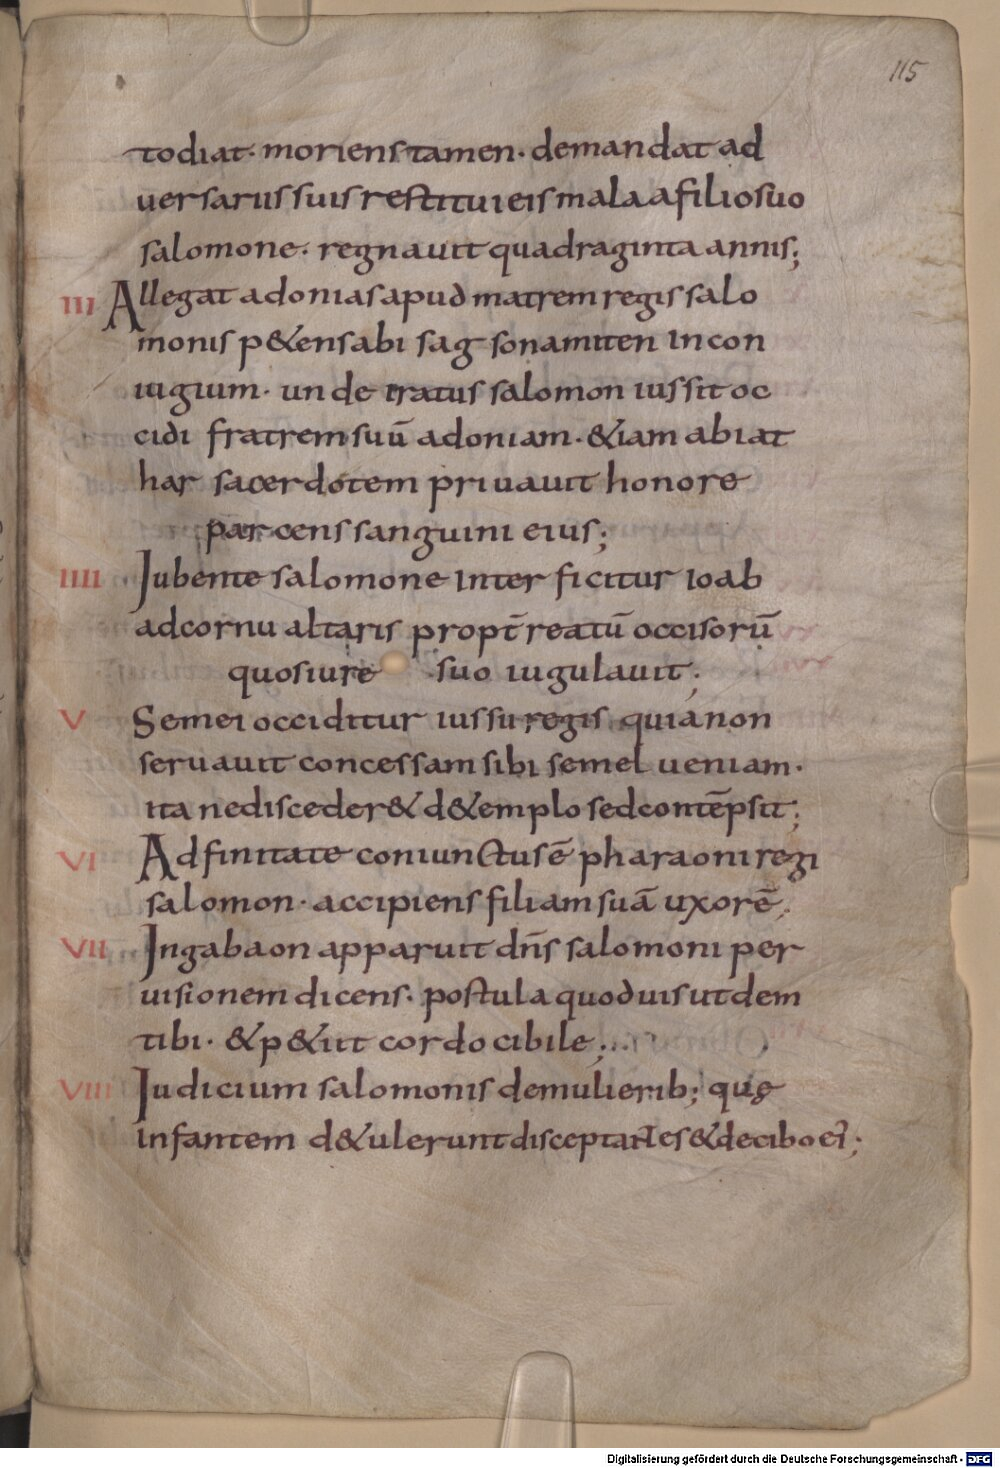 115
todiat· moriens tamen· demandat ad
uersariis suis restitui eis mala a filio suo
salomone· regnauit quadraginta annis;
III Allegat adonias apud matrem regis salo
monis p&ens abisag sonamiten in con
iugium· unde iratus salomon iussit oc
cidi fratrem suū adoniam· &iam abiat
har sacerdotem priuauit honore
parcens sanguini eius;
IIII Jubente salomone interficitur ioab
ad cornu altaris propt̄ reatū occisorū
quos iure suo iugulauit;
V Semei occiditur iussu regis quia non
seruauit concessam sibi semel ueniam·
ita ne disceder& d& emplo sed contēpsit;
VI Adfinitate coniunctus ē pharaoni regi
salomon· accipiens filiam suā uxorē;
VII In gabaon apparuit dn̄s salomoni per
uisionem dicens· postula quod uis ut dem
tibi· & p&iit cor docibile;
VIII Judicium salomonis de mulierib; quę
infantem d&ulerunt disceptantes &de cibo ei';
Digitalisierung gefördert durch die Deutsche Forschungsgemeinschaft - DFG